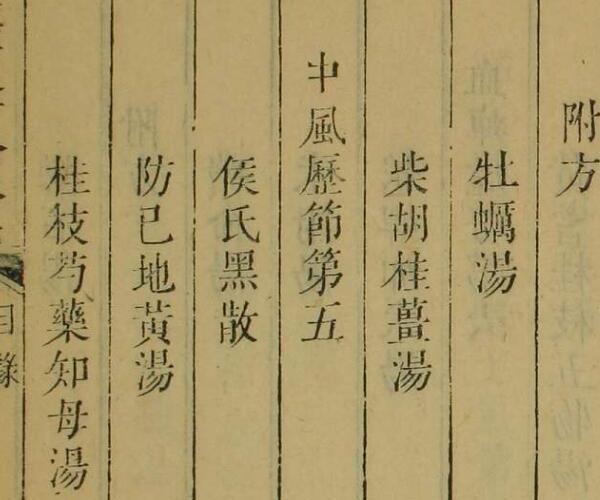 附方
牡蠣湯
柴胡桂薑湯
中風歷節第五
侯氏黑散
防已地黃湯
桂枝芍藥知母湯
目錄